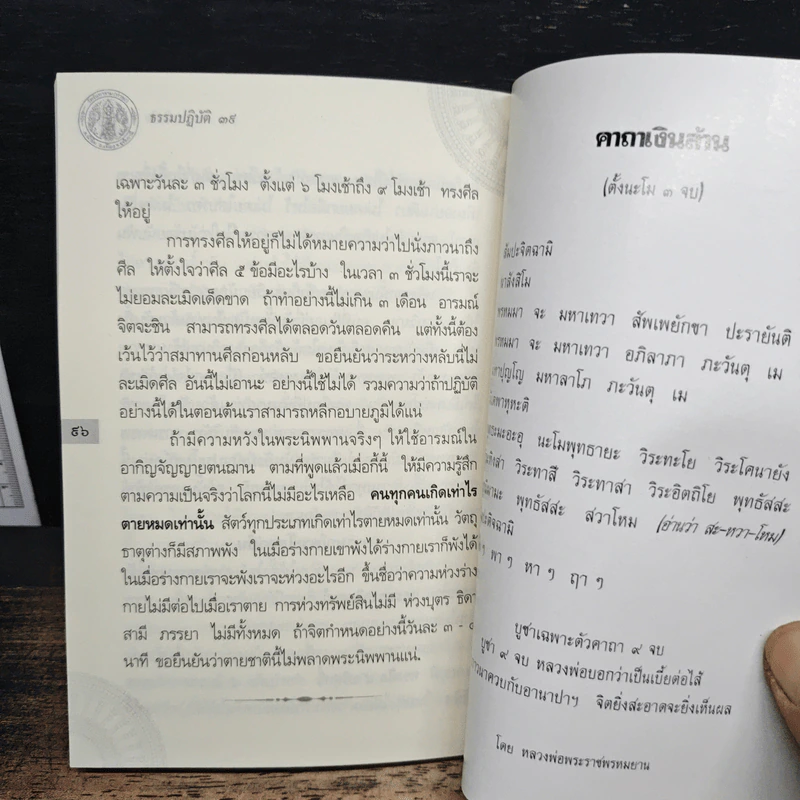 ธรรมปฏิบัติ ๓๙
เฉพาะวันละ ๓ ชั่วโมง ตั้งแต่ ๖ โมงเช้าถึง ๙ โมงเช้า ทรงศีล
ให้อยู่
การทรงศีลให้อยู่ก็ไม่ได้หมายความว่าไปนั่งภาวนาถึง
ศีล ให้ตั้งใจว่าศีล ๕ ข้อมีอะไรบ้าง ในเวลา ๓ ชั่วโมงนี้เราจะ
ไม่ยอมละเมิดเด็ดขาด ถ้าทำอย่างนี้ไม่เกิน ๓ เดือน อารมณ์
จิตจะชิน สามารถทรงศีลได้ตลอดวันตลอดคืน แต่ทั้งนี้ต้อง
เว้นไว้ว่าสมาทานศีลก่อนหลับ ขอยืนยันว่าระหว่างหลับนี้ไม่
ละเมิดศีล อันนี้ไม่เอานะ อย่างนี้ใช้ไม่ได้ รวมความว่าถ้าปฏิบัติ
อย่างนี้ได้ในตอนต้นเราสามารถหลีกอบายภูมิได้แน่
๕๖
ถ้ามีความหวังในพระนิพพานจริงๆ ให้ใช้อารมณ์ใน
อากิญจัญญายตนฌาน ตามที่พูดแล้วเมื่อกี้นี้ ให้มีความรู้สึก
ตามความเป็นจริงว่าโลกนี้ไม่มีอะไรเหลือ คนทุกคนเกิดเท่าไร
ตายหมดเท่านั้น สัตว์ทุกประเภทเกิดเท่าไรตายหมดเท่านั้น วัตถุ
ธาตุต่างก็มีสภาพพัง ในเมื่อร่างกายเขาพังได้ร่างกายเราก็พังได้
ในเมื่อร่างกายเราจะพังเราจะห่วงอะไรอีก ขึ้นชื่อว่าความห่วงร่าง
กายไม่มีต่อไปเมื่อเราตาย การห่วงทรัพย์สินไม่มี ห่วงบุตร ธิดา
สามี ภรรยา ไม่มีทั้งหมด ถ้าจิตกำหนดอย่างนี้วันละ ๓ -
นาที ขอยืนยันว่าตายชาตินี้ไม่พลาดพระนิพพานแน่.
คาถาเงินล้าน
(ตั้งนะโม ๓ จบ)
ัมปะจิตฉามิ
าสังสิโม
พรหมมา จะ มหาเทวา สัพเพยักขา ปะรายันติ
พรหมมา จะ มหาเทวา อภิลาภา ภะวันตุ เม
หาปุญโญ มหาลาโภ ภะวันตุ เม
ตพาหุหะติ
นะโมพุทธายะ วิระทะโย วิระโคนายัง
วิระทาสี วิระทาสา วิระอิตถิโย พุทธัสสะ
พุทธัสสะ สวาโหม (อ่านว่า สะ-หวา-โหม)
ๆ พา ๆ หา ๆ ฤา ๆ
บูชาเฉพาะตัวคาถา ๙ จบ
บูชา ๙ จบ หลวงพ่อบอกว่าเป็นเบี้ยต่อไส้
วนาควบกับอานาปาฯ จิตยิ่งสะอาดจะยิ่งเห็นผล
โดย หลวงพ่อพระราชพรหมยาน